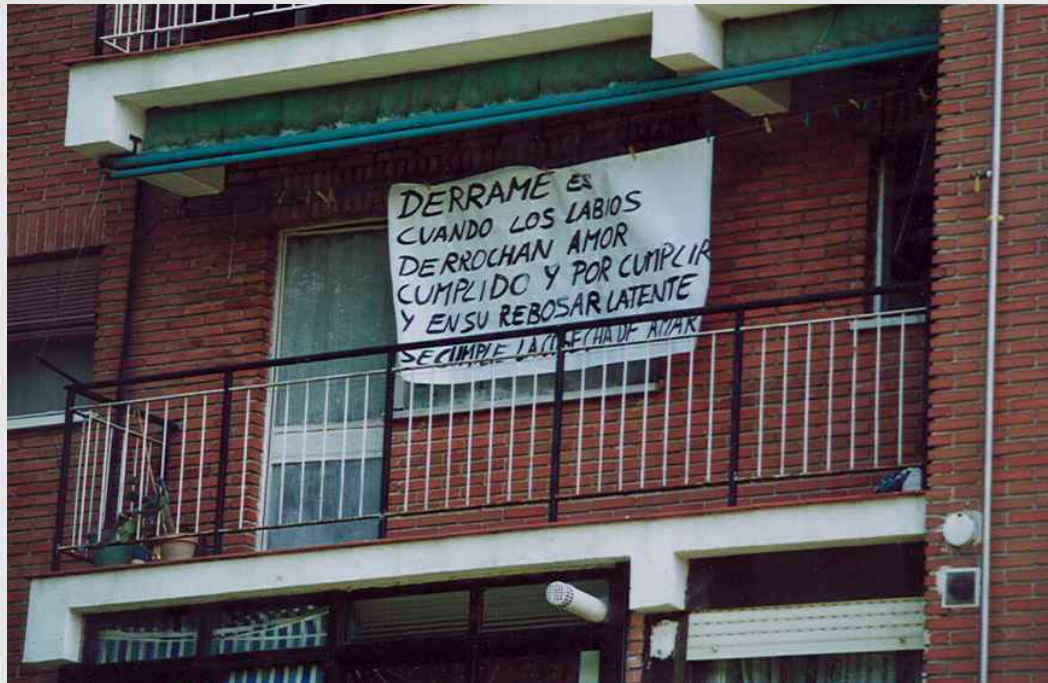 DERRAME ES
CUANDO LOS LABIOS
DERROCHAN AMOR
CUMPLIDO Y POR CUMPLIR
Y EN SU REBOSAR LATENTE
SE CUMPLE LA COSECHA DE AMAR